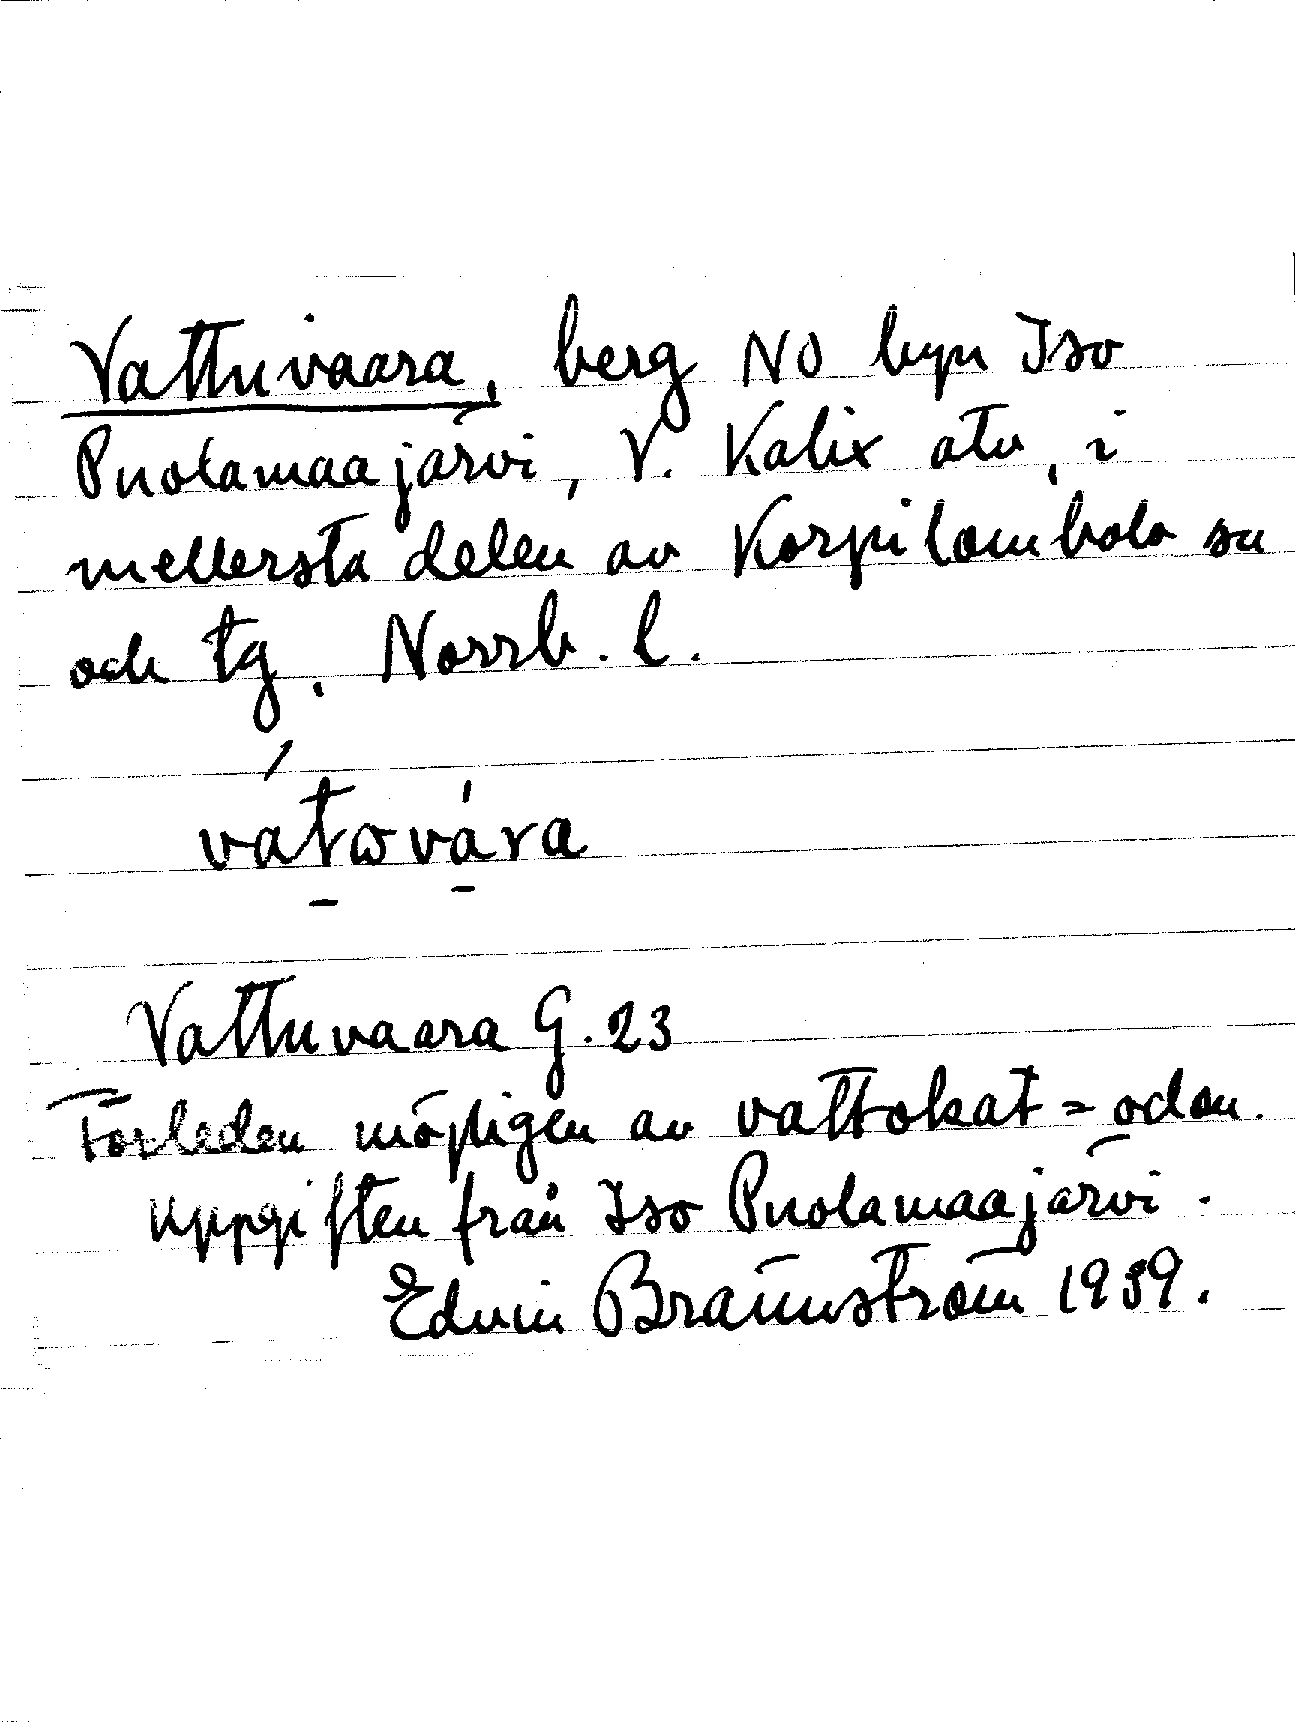 Vattuvaara, berg NO byn Iso
Puolamaajärvi, V. Kalix älv, i
mellersta delen av Korpilombolo sn
och tg, Norrb. l.
vátωvára
Vattuvaara G.23
Förleden möjligen av vattokat = odon.
Uppgiften från Iso Puolamaajärvi.
Edvin Brännström 1939.